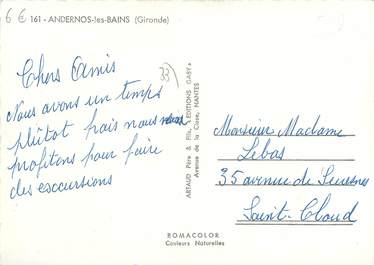 6 €
161 - ANDERNOS-les-BAINS (Gironde)
Chers Amis
33)
Nous avons un temps
plûtot frais nous nous
profitons pour faire
des esccursions
ARTAUD Père & Fils, "EDITIONS GABY"
Avenue de la Close, NANTES
Monsieur Madame
Lebas
35 avenue de Suresnes
Saint-Cloud
ROMACOLOR
Couleurs Naturelles